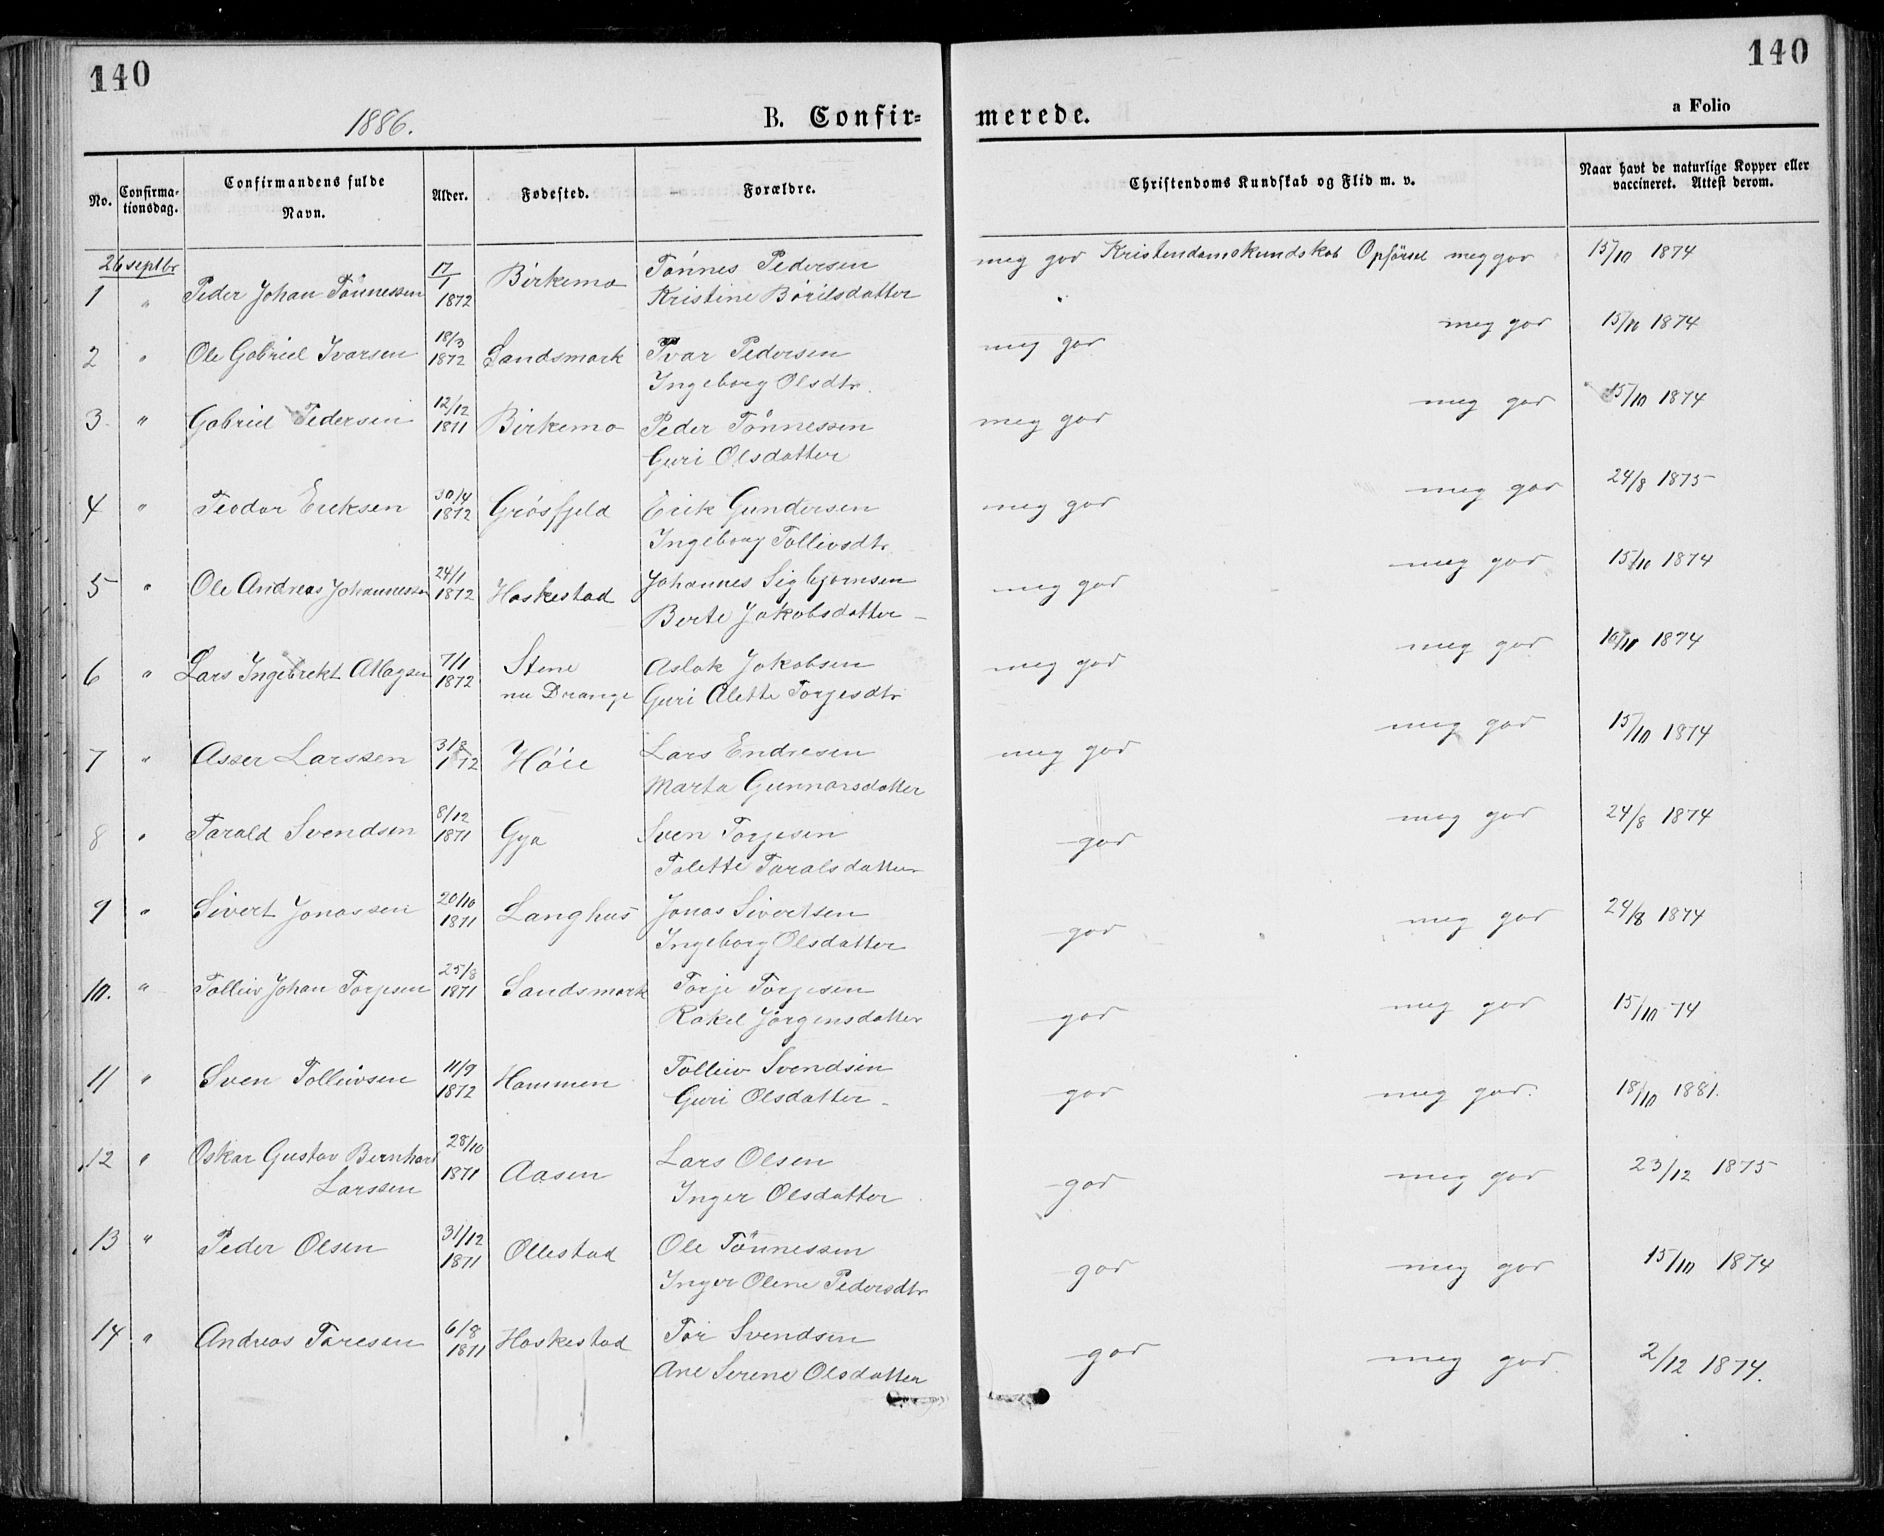 140
140
1886.
B. Confirmerede.
a Folio
No.
Confirmationsdag.
Confirmandens fulde Navn.
Alder.
Fødested.
Forældre.
Christendoms Kundskab og Flid m. v.
Naar havt de naturlige Kopper eller vaccineret. Attest derom.
26 septbr
1 " Peder Johan Tønnessen 17/1 1872 Birkemo Tønnes Pedersen meg god Kristendomskundskab Opførsel meg god 15/10 1874
Kristine Børilsdatter
2 " Ole Gabriel Ivarsen 18/3 1872 Sandsmark Ivar Pedersen meg god meg god 15/10 1874
Ingeborg Olsdtr.
3 " Gabriel Pedersen 12/12 1871 Birkemo Peder Tønnessen meg god meg god 15/10 1874
Guri Olsdatter
4 " Teodor Eriksen 30/4 1872 Grøsfjeld Erik Gundersen meg god meg god 24/8 1875
Ingeborg Tollevsdtr.
5 " Ole Andreas Johannessen 24/1 1872 Haskestad Johannes Sigbjørnsen meg god meg god 15/10 1874
Berte Jakobsdatter
6 " Lars Ingebrekt Aslagsen 7/1 1872 Stene Aslak Jakobsen meg god meg god 10/10 1874
nu Drange Guri Alette Torjesdtr
7 " Asser Larssen 31/8 1872 Høie Lars Endresen meg god meg god 15/10 1874
Marta Gunnarsdatter
8 " Tarald Svendsen 8/12 1871 Gya Sven Torjesen god meg god 24/8 1874
Talette Taralsdatter
9 " Sivert Jonassen 20/10 1871 Langhus Jonas Sivertsen god meg god 24/8 1874
Ingeborg Olsdatter
10. " Tolleiv Johan Torjesen 25/8 1871 Sandsmark Torje Torjesen god meg god 15/10 74
Rakel Jørgensdatter
11 " Sven Tolleivsen 11/9 1872 Hammen Tolleiv Svendsen god meg god. 18/10 1881.
Guri Olsdatter
12 " Oskar Gustav Bernhard 28/10 1871 Aasen Lars Olsen god meg god 23/12 1875
Larssen Inger Olsdatter
13 " Peder Olsen 31/12 1871 Ollestad Ole Tønnessen god meg god 15/10 1874
Inger Olene Pedersdtr
14 " Andreas Toresen 6/8 1871 Haskestad Tor Svendsen god meg god. 2/12 1874.
Ane Serene Olsdatter